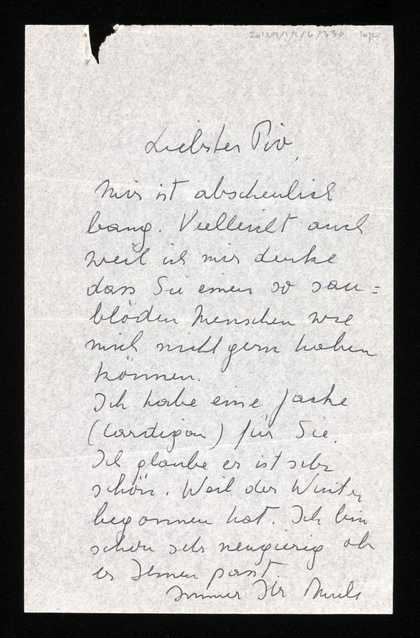 Liebster Pio,
Mir ist abscheulich
bang. Vielleicht auch
weil ich mir denke
dass Sie einen so sau=
blöden Menschen wie
mich nicht gern haben
können.
Ich habe eine Jacke
(Cardigan) für Sie.
Ich glaube er ist sehr
schön. Weil der Winter
begonnen hat. Ich bin
schon sehr neugierig ob
er Ihnen passt
Immer Ihr